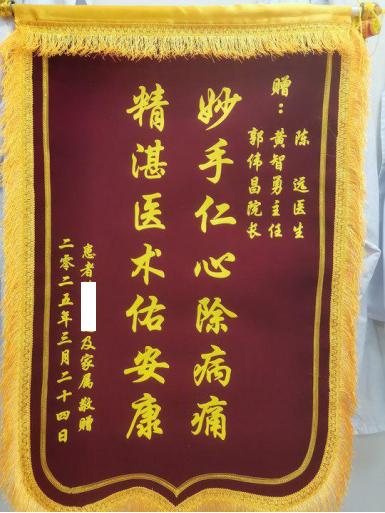 赠：
陈远医生
黄智勇主任
郭伟昌院长
妙手仁心除病痛
精湛医术佑安康
患者 及家属 敬赠
二零二五年三月二十四日